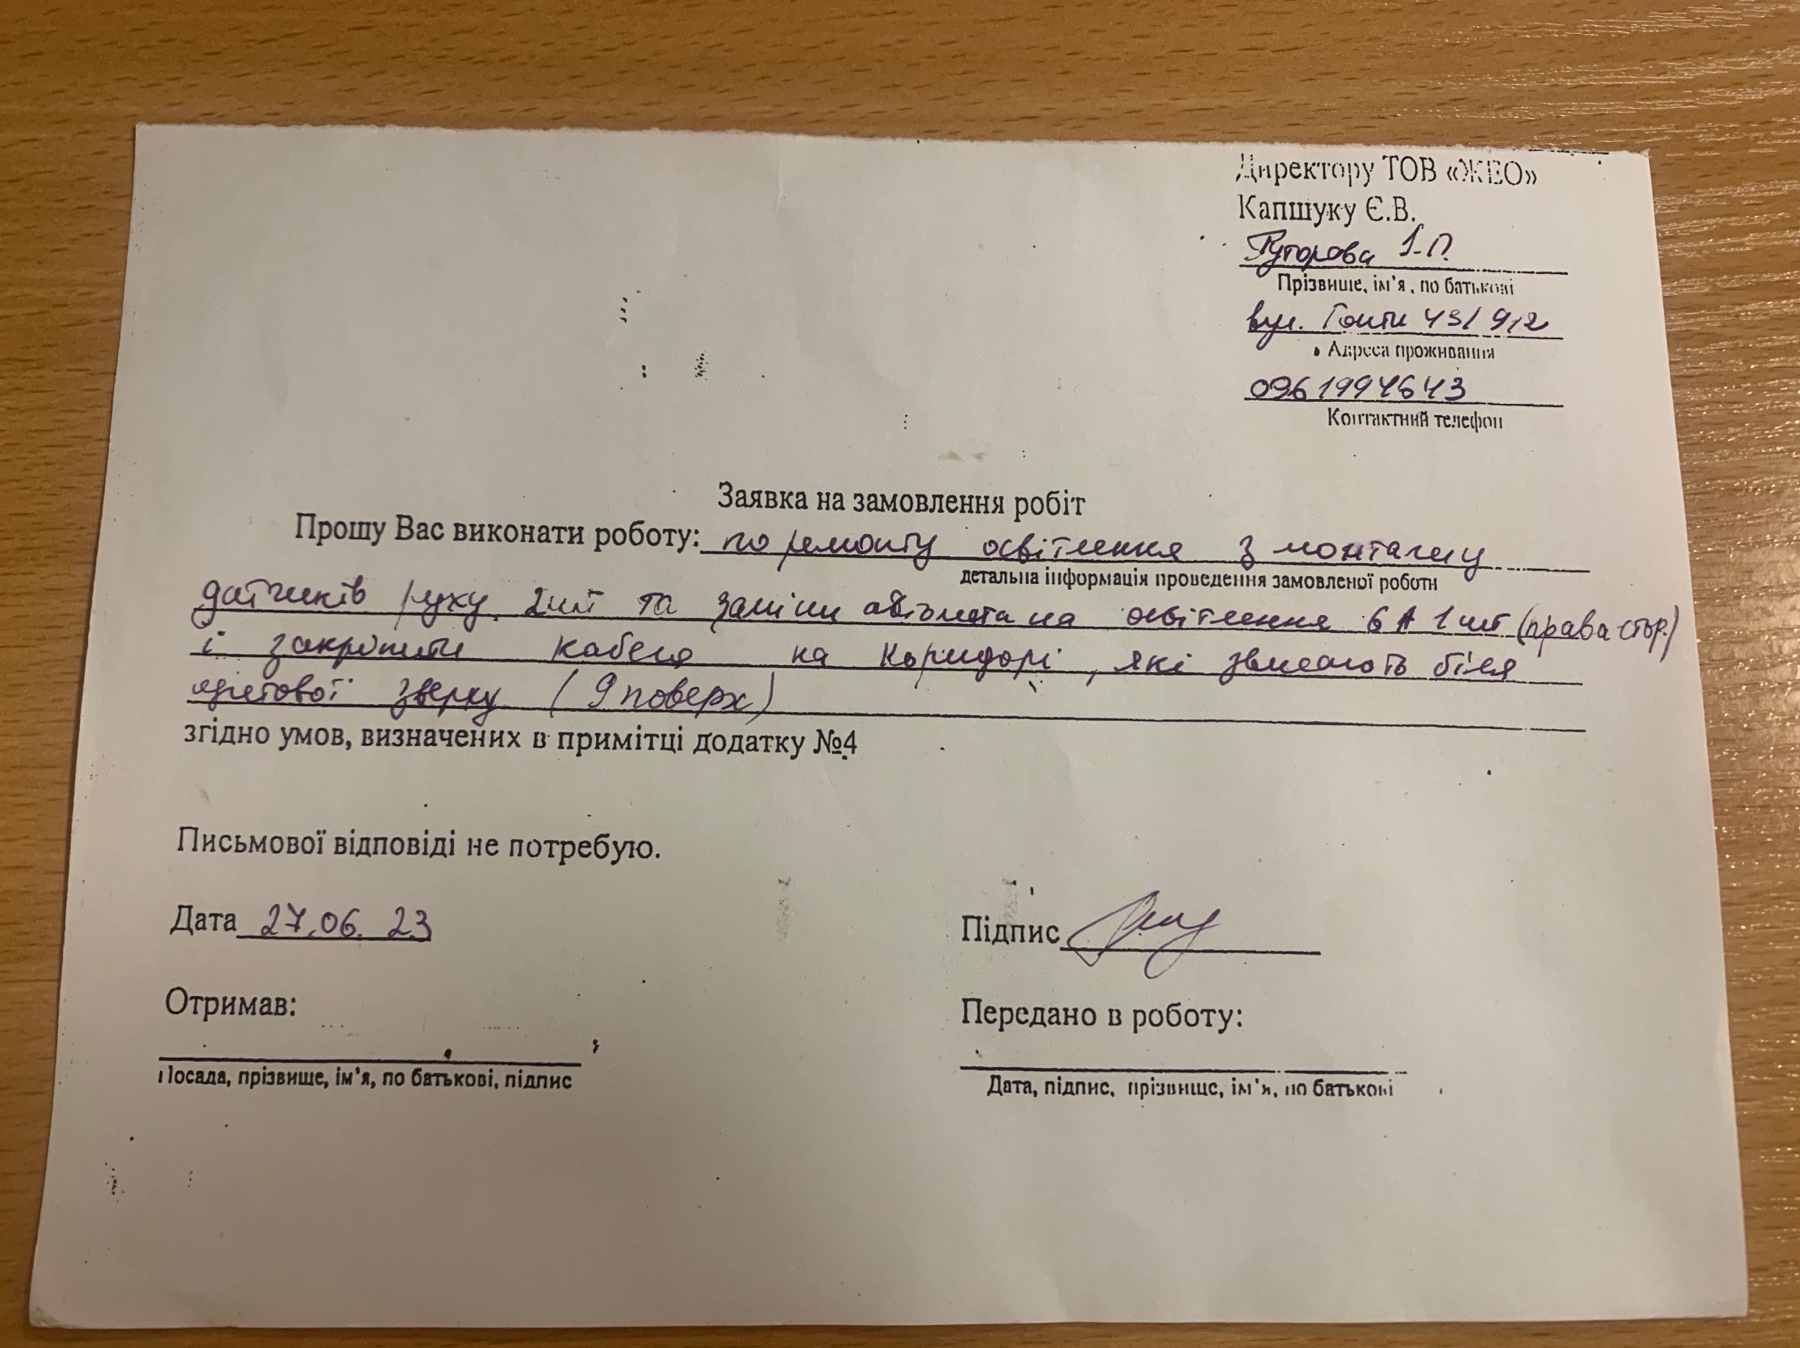 Директору ТОВ «ЖЕО»
Капшуку Є.В.
Гуторова І.П.
Прізвище, ім'я, по батькові
вул. Гонти 43/912
Адреса проживання
0961994643
Контактний телефон
Заявка на замовлення робіт
Прошу Вас виконати роботу: по ремонту освітлення з монтажу
детальна інформація проведення замовленої роботи
датчиків руху 2шт та заміни автомата на освітлення 6А 1шт (права стор.)
і закріпити кабеля на коридорі, які звисають біля
зверху (9 поверх)
згідно умов, визначених в примітці додатку №4
Письмової відповіді не потребую.
Дата 27.06.23 Підпис
Отримав: Передано в роботу:
Посада, прізвище, ім'я, по батькові, підпис Дата, підпис, прізвище, ім'я, по батькові